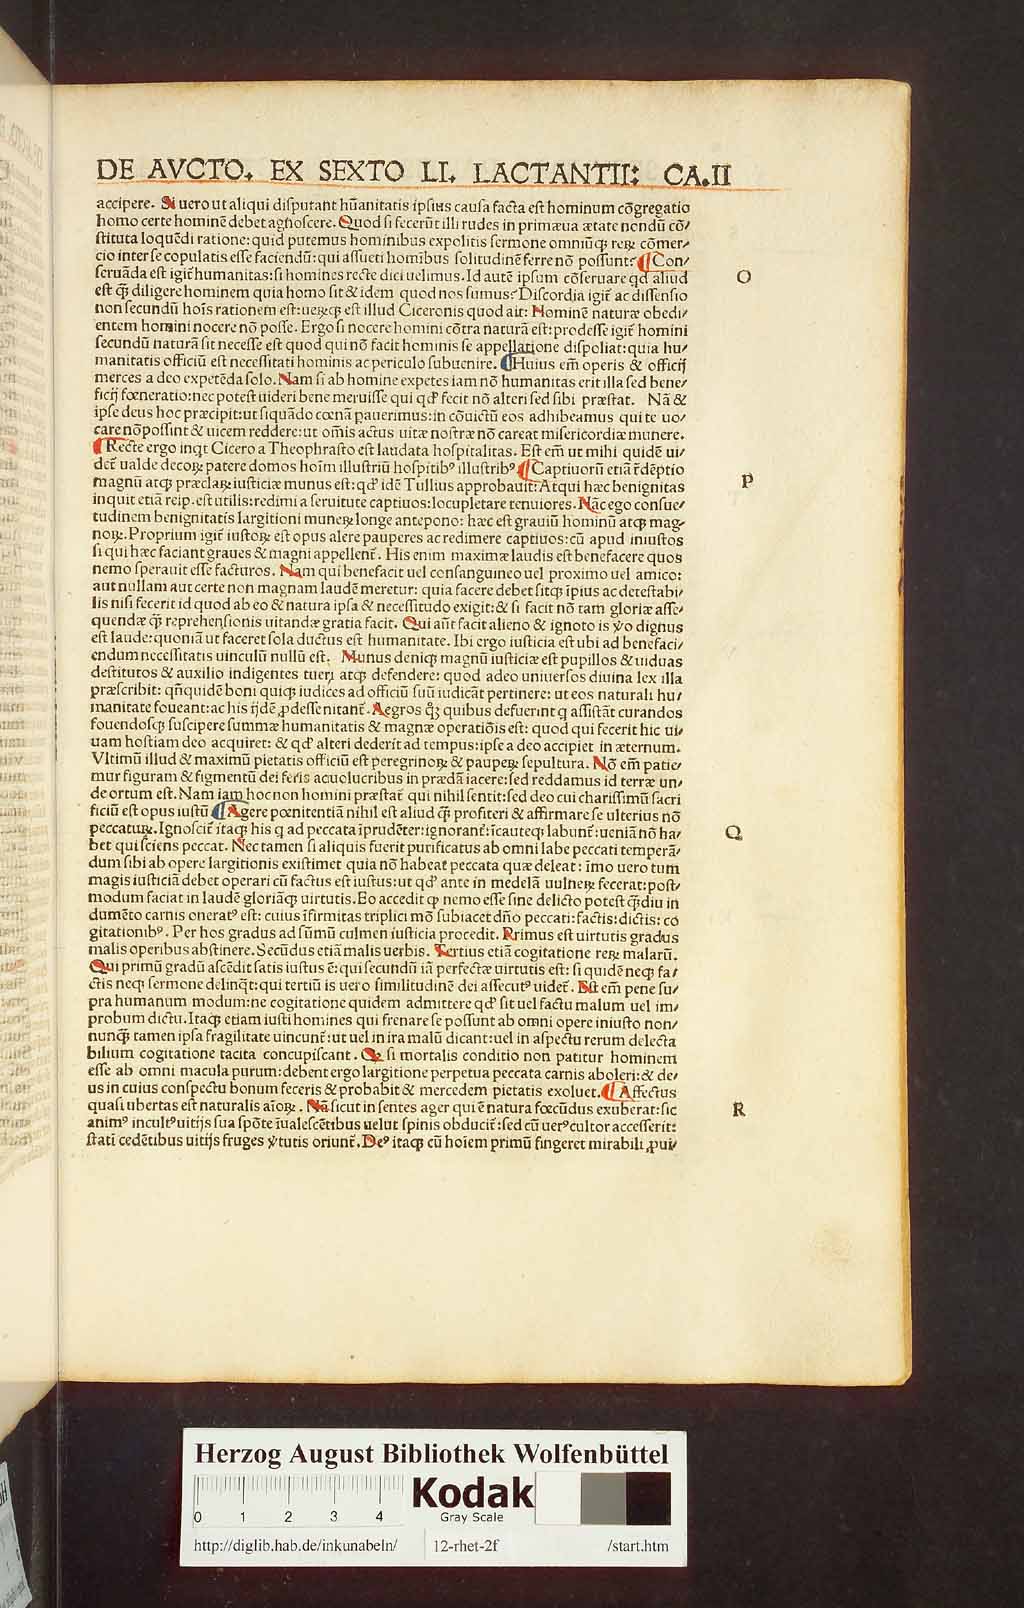 DE AVCTO. EX SEXTO LI. LACTANTII: CA.II
accipere. Si uero ut aliqui disputant hũanitatis ipsius causa facta est hominum cõgregatio
homo certe hominẽ debet agnoscere. Quod si fecerũt illi rudes in primæua ætate nondũ cõ/
stituta loquẽdi ratione: quid putemus hominibus expolitis sermone omniũqȝ reꝝ cõmer/
cio inter se copulatis esse faciendũ: qui assueti homibus solitudinẽ ferre nõ possunt? ¶Con/
O
seruãda est igit̃ humanitas: si homines recte dici uelimus. Id autẽ ipsum cõseruare qd aliud
est q̃ diligere hominem quia homo sit & idem quod nos sumus? Discordia igit̃ ac dissensio
non secundũ hoĩs rationem est: ueꝝqȝ est illud Ciceronis quod ait: Hominẽ naturæ obedi/
entem homini nocere nõ posse. Ergo si nocere homini cõtra naturã est: prodesse igit̃ homini
secundũ naturã sit necesse est quod qui nõ facit hominis se appellatione dispoliat: quia hu/
manitatis officiũ est necessitati hominis ac periculo subuenire. ¶Huius em̃ operis & officij
merces a deo expetẽda solo. Nam si ab homine expetes iam nõ humanitas erit illa sed bene/
ficij fœneratio: nec potest uideri bene meruisse qui qd' fecit nõ alteri sed sibi præstat. Nã &
ipse deus hoc præcipit: ut siquãdo cœnã pauerimus: in cõuictũ eos adhibeamus qui te uo/
care nõ possint & uicem reddere: ut om̃is actus uitæ nostræ nõ careat misericordiæ munere.
¶Recte ergo inqt Cicero a Theophrasto est laudata hospitalitas. Est em̃ ut mihi quidẽ ui/
det̃ ualde decoꝝ patere domos hoĩm illustriũ hospitibꝰ illustribꝰ ¶Captiuorũ etiã r̃dẽptio
P
magnũ atqȝ præclaꝝ iusticiæ munus est: qd' idẽ Tullius approbauit: Atqui hæc benignitas
inquit etiã reip. est utilis: redimi a seruitute captiuos: locupletare tenuiores. Nãc ego consue/
tudinem benignitatis largitioni muneꝝ longe antepono: hæc est grauiũ hominũ atqȝ mag/
noꝝ. Proprium igit̃ iustoꝝ est opus alere pauperes ac redimere captiuos: cũ apud iniustos
si qui hæc faciant graues & magni appellent̃. His enim maximæ laudis est benefacere quos
nemo sperauit esse facturos. Nam qui benefacit uel consanguineo uel proximo uel amico:
aut nullam aut certe non magnam laudẽ meretur: quia facere debet sitqȝ ĩpius ac detestabi/
lis nisi fecerit id quod ab eo & natura ipsa & necessitudo exigit: & si facit nõ tam gloriæ asse/
quendæ q̃ reprehensionis uitandæ gratia facit. Qui aũt facit alieno & ignoto is ṽo dignus
est laude: quoniã ut faceret sola ductus est humanitate. Ibi ergo iusticia est ubi ad benefaci/
endum necessitatis uinculũ nullũ est. Munus deniqȝ magnũ iusticiæ est pupillos & uiduas
destitutos & auxilio indigentes tueri atqȝ defendere: quod adeo uniuersos diuina lex illa
præscribit: qñquidẽ boni quiqȝ iudices ad officiũ suũ iudicãt pertinere: ut eos naturali hu/
manitate foueant: ac his ijdẽ ꝓdesse nitant̃. Aegros qȝ quibus defuerint q assistãt curandos
fouendosqȝ suscipere summæ humanitatis & magnæ operatiõis est: quod qui fecerit hic ui/
uam hostiam deo acquiret: & qd' alteri dederit ad tempus: ipse a deo accipiet in æternum.
Vltimũ illud & maximũ pietatis officiũ est peregrinoꝝ & paupeꝝ sepultura. Nõ em̃ patie/
mur figuram & figmentũ dei feris ac uolucribus in prædã iacere: sed reddamus id terræ un/
de ortum est. Nam iam hoc non homini præstat̃ qui nihil sentit: sed deo cui charissimũ sacri
ficiũ est opus iustũ ¶Agere pœnitentiã nihil est aliud q̃ profiteri & affirmare se ulterius nõ
Q
peccatuꝝ. Ignoscit̃ itaqȝ his q ad peccata ĩprudẽter: ignorant̃: ĩcauteqȝ labunt̃: ueniã nõ ha/
bet qui sciens peccat. Nec tamen si aliquis fuerit purificatus ab omni labe peccati temperã/
dum sibi ab opere largitionis existimet quia nõ habeat peccata quæ deleat: ĩmo uero tum
magis iusticiã debet operari cũ factus est iustus: ut qd' ante in medelã uulneꝝ fecerat: post/
modum faciat in laudẽ gloriãqȝ uirtutis. Eo accedit qȝ nemo esse sine delicto potest q̃diu in
dumẽto carnis oneratꝰ est: cuius ĩfirmitas triplici mõ subiacet dño peccati: factis: dictis: co
gitationibꝰ. Per hos gradus ad sũmũ culmen iusticia procedit. Primus est uirtutis gradus
malis operibus abstinere. Secũdus etiã malis uerbis. Tertius etiã cogitatione reꝝ malarũ.
Qui primũ gradũ ascẽdit satis iustus ẽ: qui secundũ iã perfectæ uirtutis est: si quidẽ neqȝ fa/
ctis neqȝ sermone delinq̃t: qui tertiũ is uero similitudinẽ dei assecutꝰ uidet̃. Est em̃ pene su/
pra humanum modum: ne cogitatione quidem admittere qd' sit uel factu malum uel im/
probum dictu. Itaqȝ etiam iusti homines qui frenare se possunt ab omni opere iniusto non/
nunq̃ tamen ipsa fragilitate uincunt̃: ut uel in ira malũ dicant: uel in aspectu rerum delecta
bilium cogitatione tacita concupiscant. Qȝ si mortalis conditio non patitur hominem
esse ab omni macula purum: debent ergo largitione perpetua peccata carnis aboleri: & de/
us in cuius conspectu bonum feceris & probabit & mercedem pietatis exoluet. ¶Affectus
R
quasi ubertas est naturalis aĩoꝝ. Nã sicut in sentes ager qui ẽ natura fœcũdus exuberat: sic
animꝰ incultꝰ uitijs sua spõte ĩualescẽtibus uelut spinis obducit̃: sed cũ uerꝰ cultor accesserit:
statĩ cedẽtibus uitijs fruges ṽtutis oriunt̃. Deꝰ itaqȝ cũ hoĩem primũ fingeret mirabili ꝓui/
Herzog August Bibliothek Wolfenbüttel
0 1 2 3 4
Kodak
Gray Scale
http://diglib.hab.de/inkunabeln/ 12-rhet-2f /start.htm